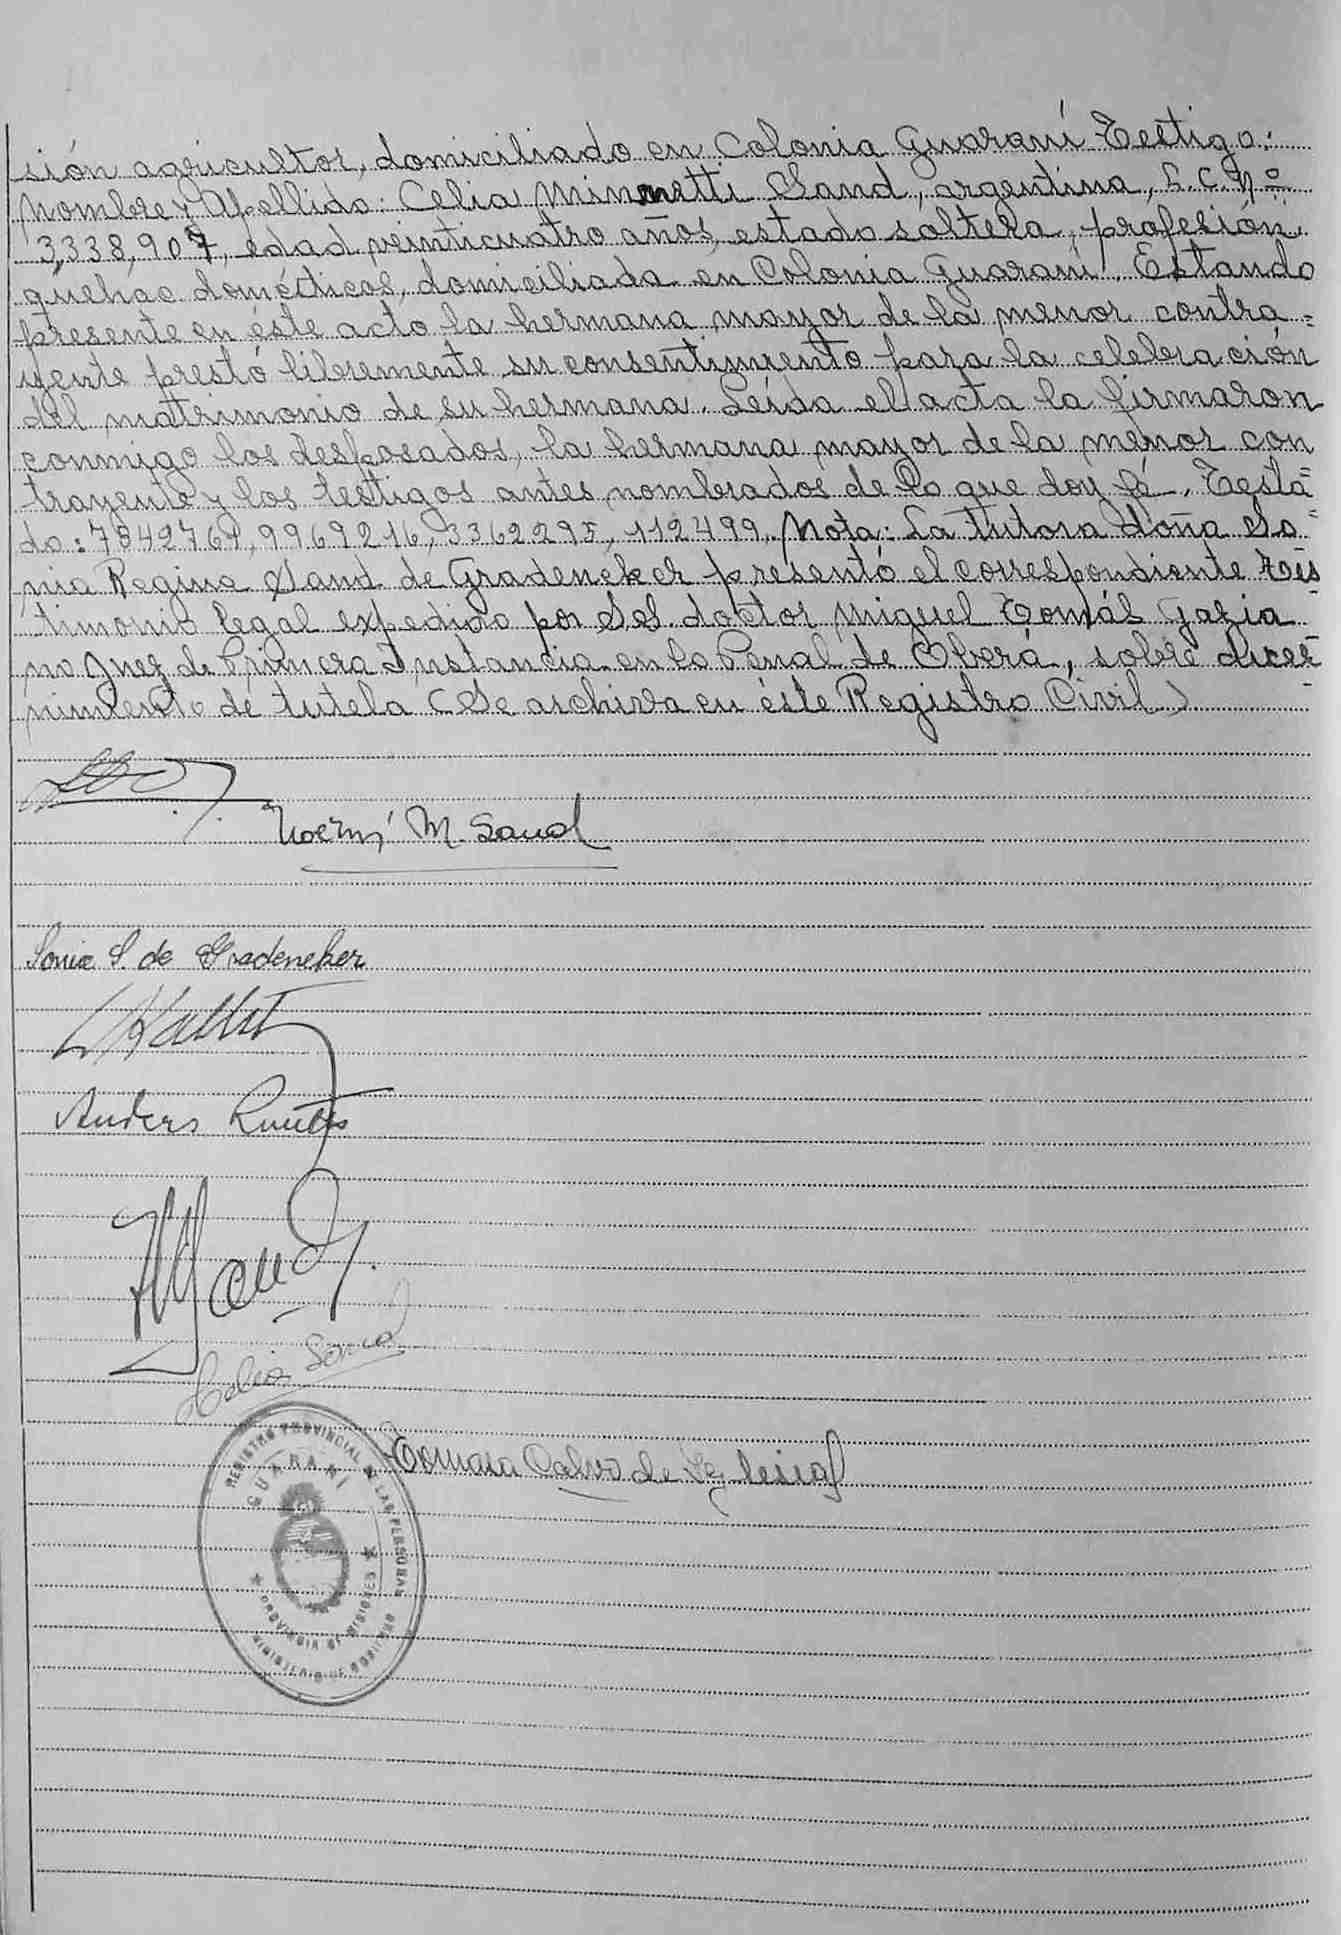 sión agricultor, domiciliado en Colonia Guaraní Testigo:
Nombre y Apellido: Celia Minnetti Sand, argentina, L.C.Nº
3,338,907, edad veinticuatro años, estado soltera, profesión
quehac domésticos, domiciliada en Colonia Guaraní. Estando
presente en éste acto la hermana mayor de la menor contra=
yente prestó libremente su consentimiento para la celebración
del matrimonio de su hermana. Leída el acta la firmaron
conmigo los desposados, la hermana mayor de la menor con
trayente y los testigos antes nombrados de lo que doy fé. Testa=
do: 7842761, 9969216, 3362295, 112499. Nota: La tutora doña So=
nia Regina Sand de Gradeneker presentó el correspondiente tes=
timonio legal expedido por SS doctor Miguel Tomás Gazia
no Juez de Primera Instancia en lo Penal de Oberá, sobre dicer=
nimiento de tutela (Se archiva en éste Registro Civil)
Noemí M. Sand
Sonia S. de Gradeneker
Anders
Sand
Celia Sand
Tomasa Calvo de Iglesias
REGISTRO PROVINCIAL DE LAS PERSONAS
GUARANI
PROVINCIA DE MISIONES
MINISTERIO DE GOBIERNO